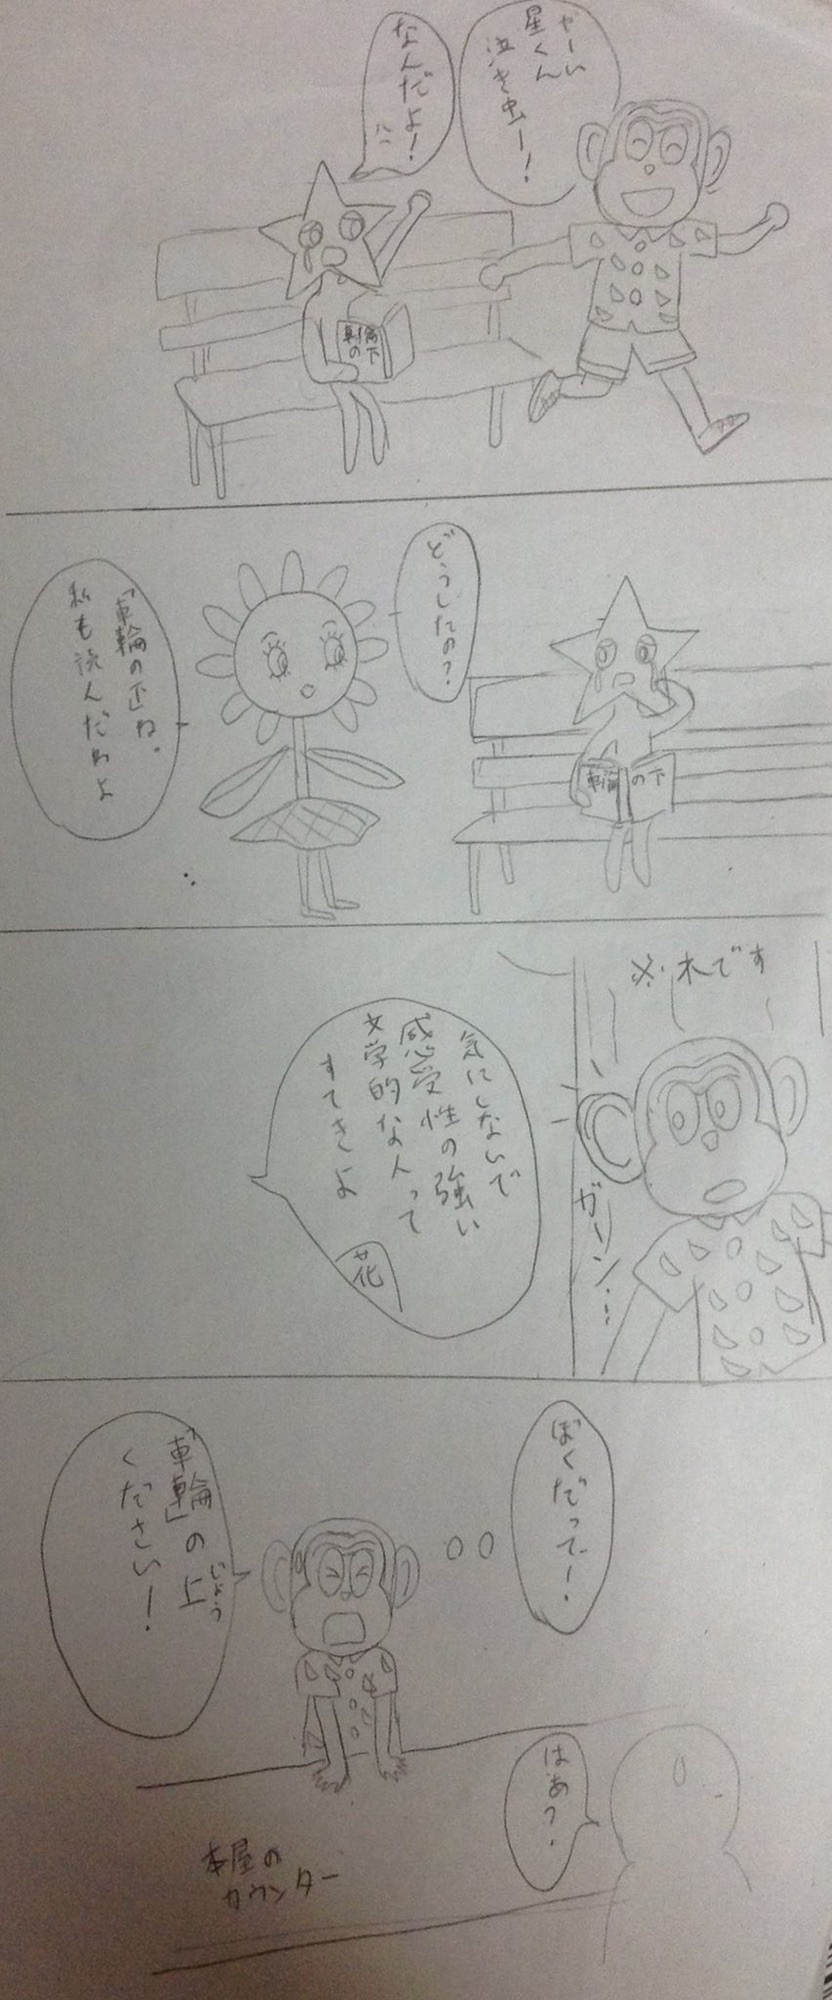 やーい
星くん
泣き虫ー!
なんだよ!
車輪
の下
どうしたの?
車輪の下
「車輪の下」ね。
私も読んだわよ
※木です
ガーン…
気にしないで
感受性の強い
文学的な人って
すてきよ
花
ぼくだって!
「車輪」の上
じょう
ください!
はあ?
本屋の
カウンター